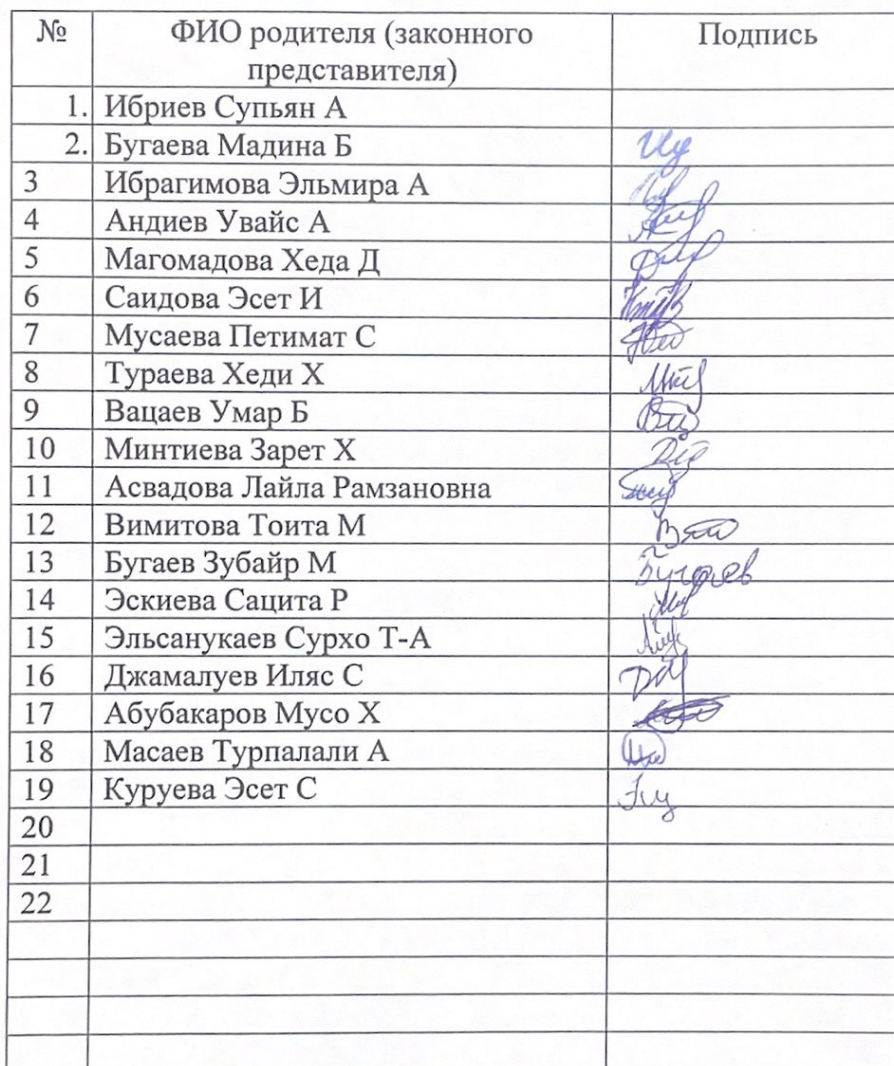 № ФИО родителя (законного Подпись
представителя)
1. Ибриев Супьян А
2. Бугаева Мадина Б
3 Ибрагимова Эльмира А
4 Андиев Увайс А
5 Магомадова Хеда Д
6 Саидова Эсет И
7 Мусаева Петимат С
8 Тураева Хеди Х
9 Вацаев Умар Б
10 Минтиева Зарет Х
11 Асвадова Лайла Рамзановна
12 Вимитова Тоита М
13 Бугаев Зубайр М Бугаев
14 Эскиева Сацита Р
15 Эльсанукаев Сурхо Т-А
16 Джамалуев Иляс С
17 Абубакаров Мусо Х
18 Масаев Турпалали А
19 Куруева Эсет С
20
21
22